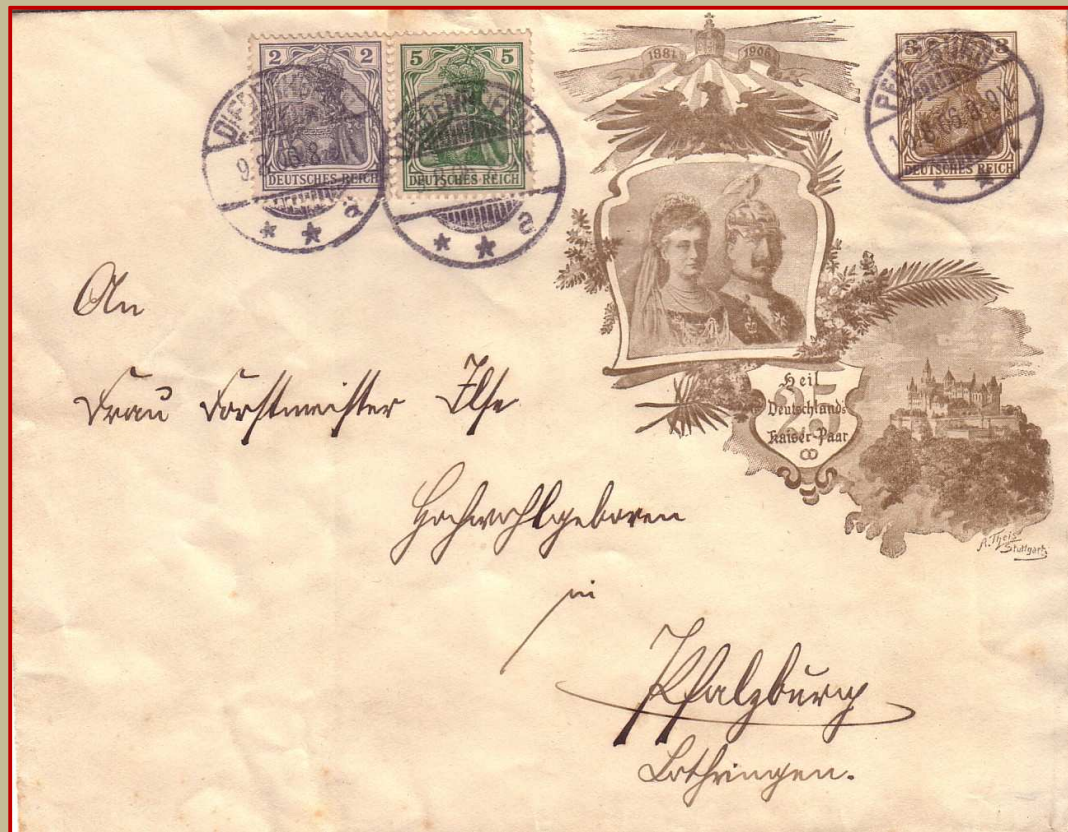 2 2
DEUTSCHES REICH
5 5
DEUTSCHES REICH
9.8.06.8
a
a
1881 1906
3 3
DEUTSCHES REICH
Heil
25
Deutschlands
Kaiser-Paar
A. Theis
Stuttgart
An
Frau Forstmeister Ilse
Hochwohlgeboren
in
Pfalzburg
Lothringen.